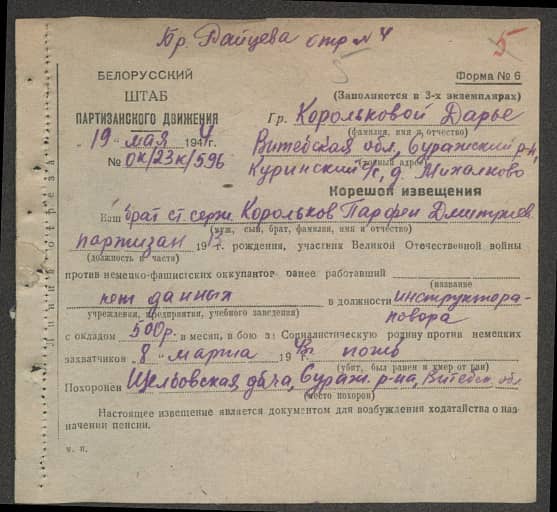 Бр. Райцева отр № 4
5
5
БЕЛОРУССКИЙ
ШТАБ
ПАРТИЗАНСКОГО ДВИЖЕНИЯ
19 " мая 1944 г.
№ ок/23к/596
Форма № 6
(Заполняется в 3-х экземплярах)
Гр. Корольковой Дарье
(фамилия, имя и отчество)
Витебская обл., Суражский р-н,
Куринский с/с, д. Михалково
Корешок извещения
Ваш брат ст. серж. Корольков Парфен Дмитриев.
(муж, сын, брат, фамилия, имя и отчество)
партизан 19 рождения, участник Великой Отечественной войны
(должность и часть)
против немецко-фашистских оккупантов ранее работавший
(название
нет данных в должности инструктора-
учреждения, предприятия, учебного заведения)
повора
с окладом 500р. в месяц, в бою за Социалистическую родину против немецких
захватчиков 8 " марта 194 погиб
(убит, был ранен и умер от ран)
Похоронен Щелбовская дача, Сураж. р-на, Витебск. обл
(место похорон)
Настоящее извещение является документом для возбуждения ходатайства о на-
значении пенсии.
м. п.